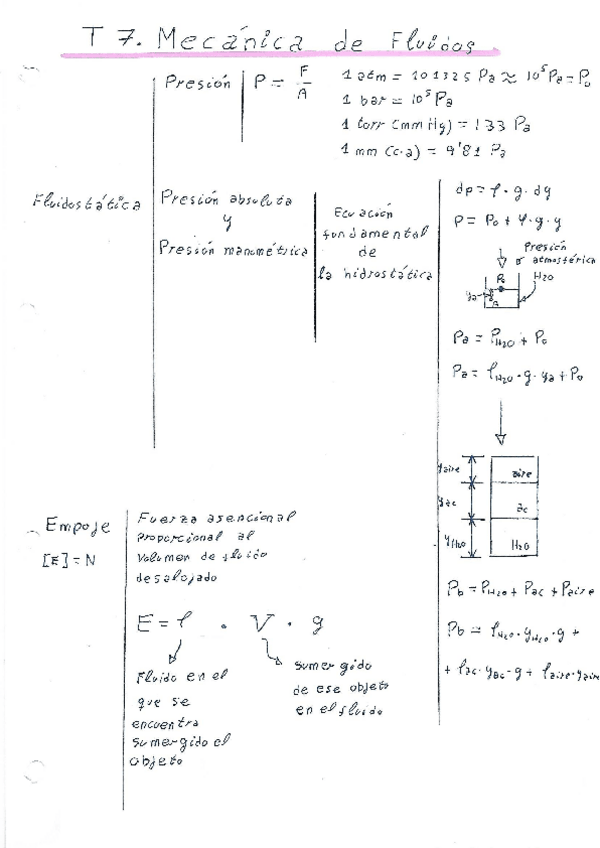 T 7. Mecánica de Fluidos.
Presión
P = F/A
1 atm = 101325 Pa ≈ 10⁵ Pa = P₀
1 bar = 10⁵ Pa
1 torr (mm Hg) = 133 Pa
1 mm (c.a) = 9'81 Pa
Fluidostática
Presión absoluta
y
Presión manométrica
Ecuación
fundamental
de
la hidrostática
dp = ρ · g · dy
P = P₀ + ρ · g · y
Presión
atmosférica
P₀
H₂O
ya
A
Pa = P_H₂O + P₀
Pa = ρ_H₂O · g · ya + P₀
yaire
aire
yac
ac
y_H₂O
H₂O
Pb = P_H₂O + Pac + Paire
Pb = ρ_H₂O · y_H₂O · g +
+ ρac · yac · g + ρaire · yaire
Empoje
[E] = N
Fuerza asencional
proporcional al
volumen de fluido
desalojado
E = ρ . V . g
Fluido en el
que se
encuentra
sumergido el
objeto
sumergido
de ese objeto
en el fluido